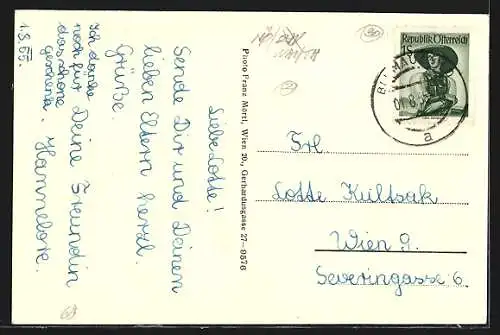 1.8.65.
Ich danke
noch für
das schöne
geschenk.
Liebe Lotte!
Sende Dir und Deinen
lieben Eltern herzl.
Grüße.
Deine Freundin
Hannelore.
Photo Franz Mörtl, Wien 20., Gerhardusgasse 27 – 9576
Republik Österreich
1S
a
Frl.
Lotte Kultsak
Wien 9.
Severingasse 6.